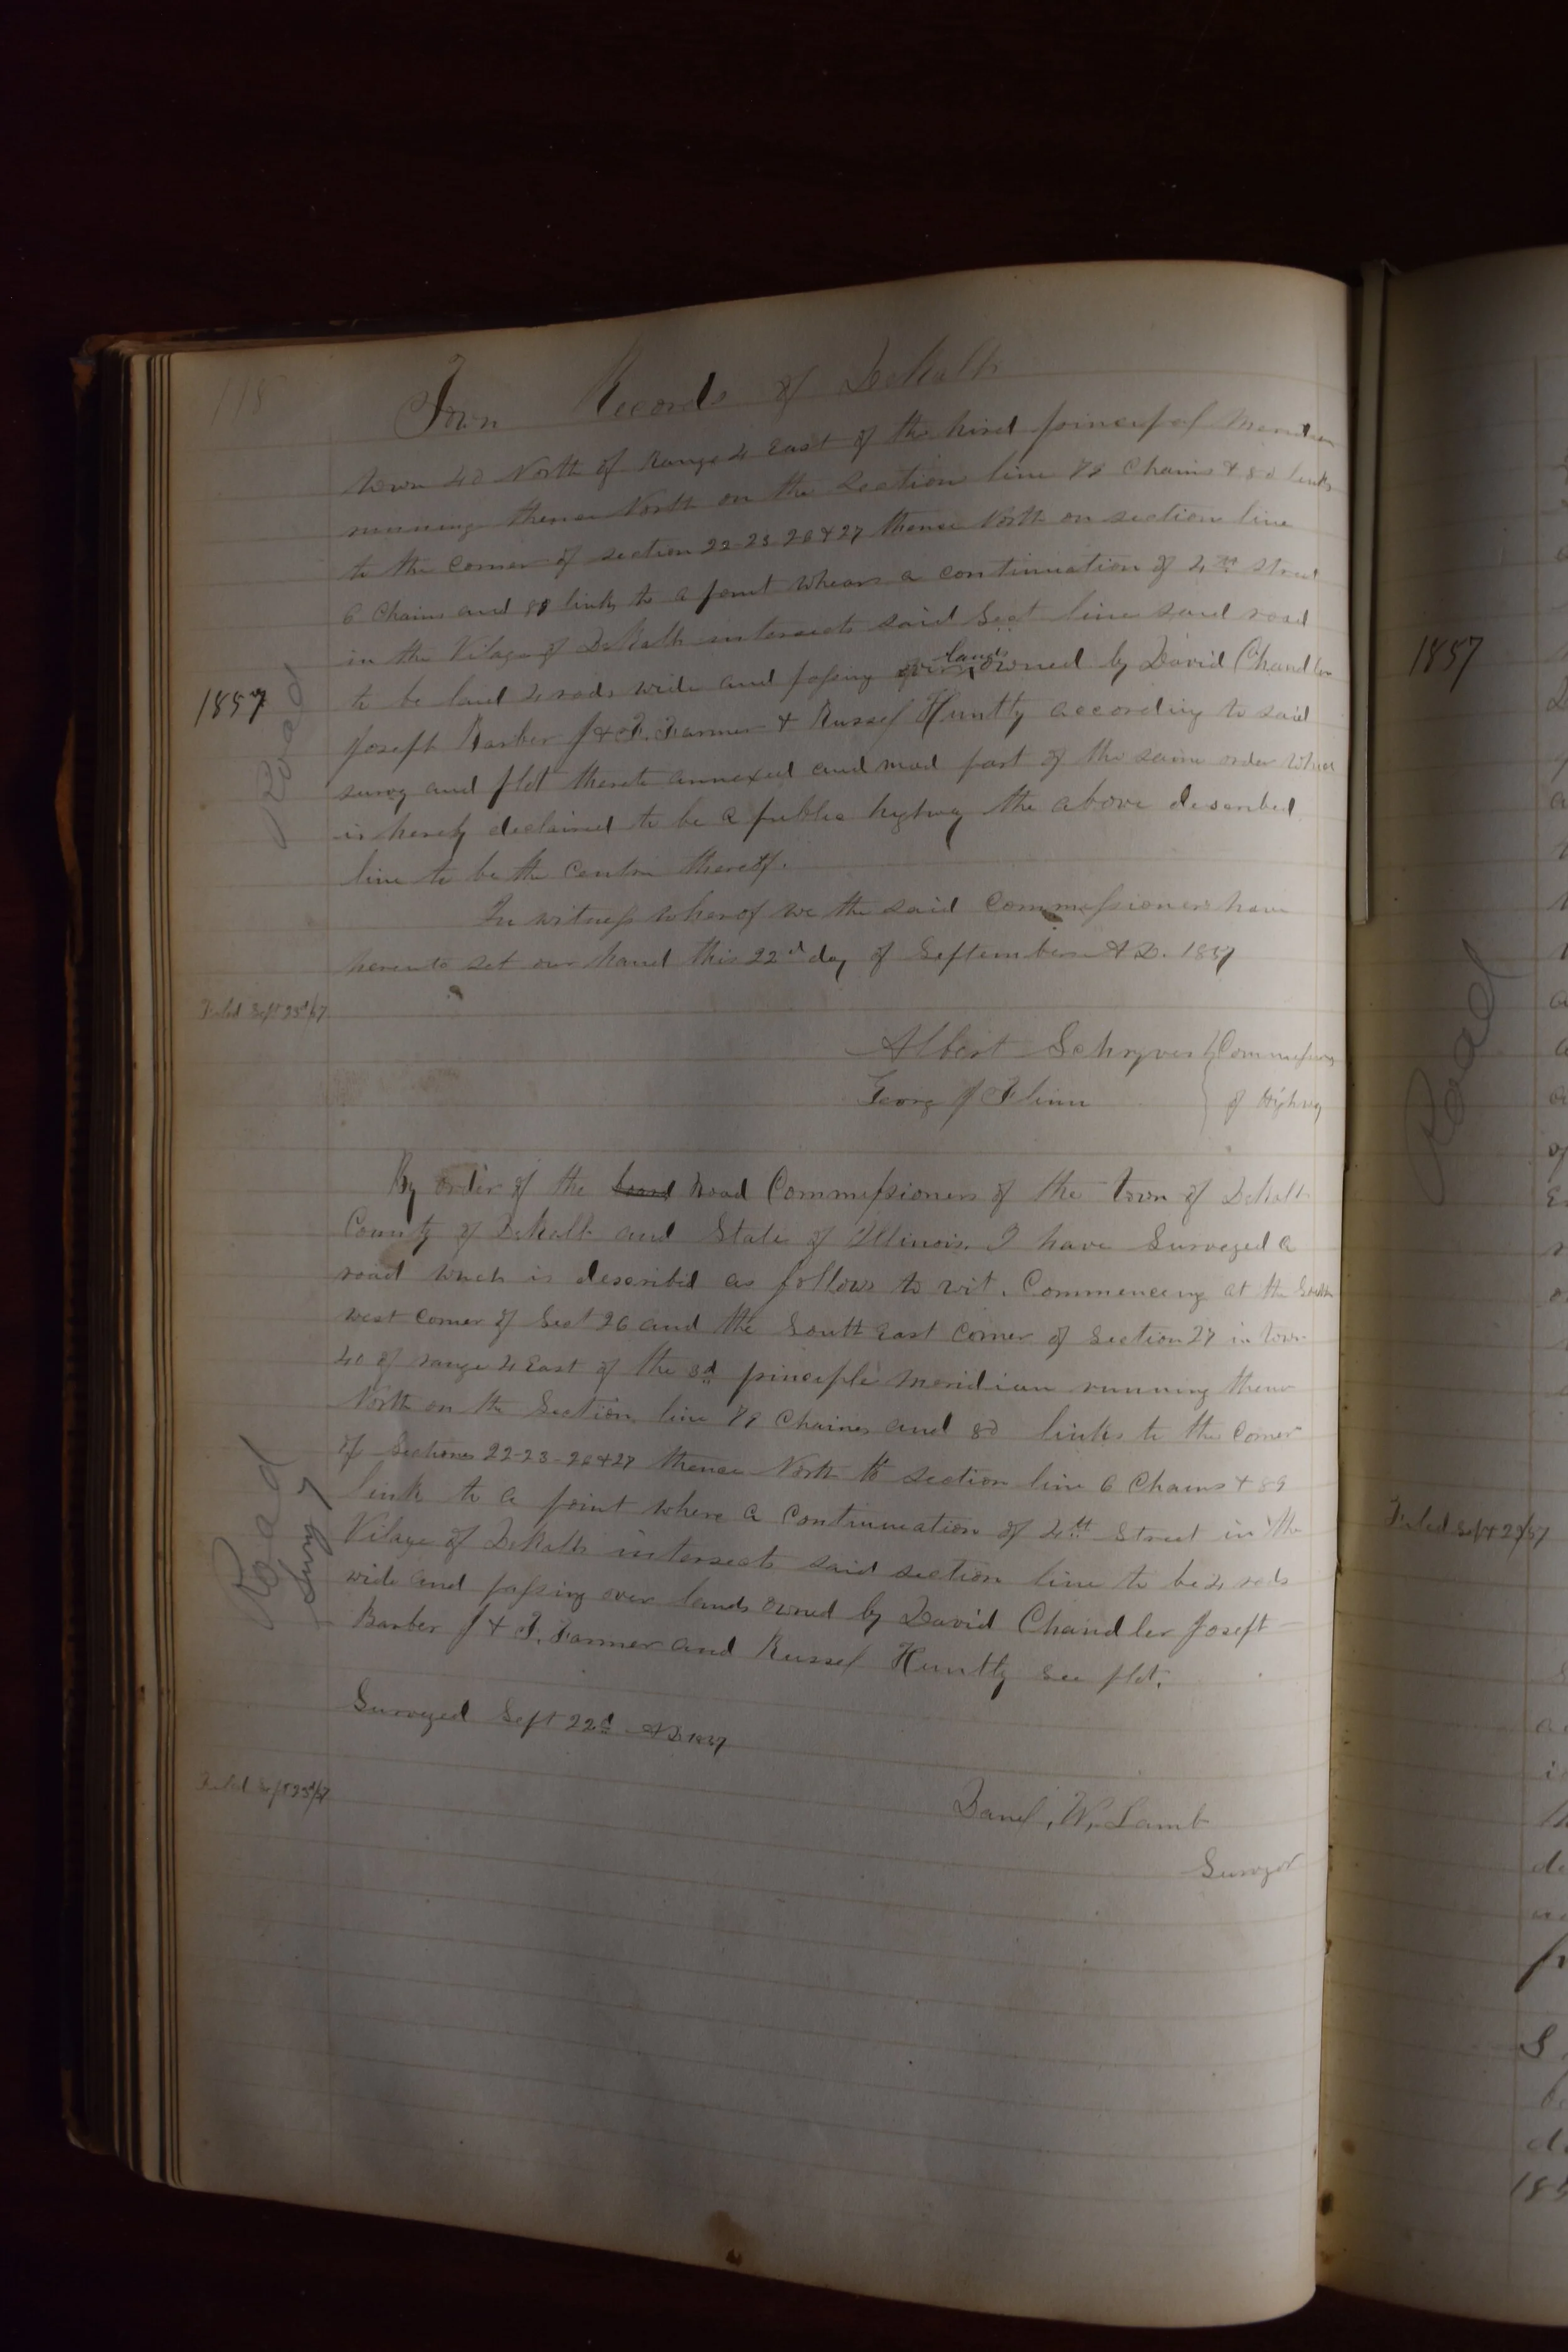 118
Town Records of DeKalb
town 40 North of Range 4 East of the hird principal Meridian
running thence North on the Section line 79 Chains & 80 links
to the corner of section 22-23-26 & 27 thence North on section line
6 Chains and 89 links to a point Whears a continuation of 4th Street
in the Vilage of DeKalb intersects said Sect line said road
to be laid 4 rods wide and passing over lands owned by David Chandler
Joseph Barber J & F. Farmer & Russel Huntly according to said
survy and plot thereto annexed and mad part of the same order which
1857
Road
is hereby declaired to be a public highwy the above described
line to be the Centre thereof.
In witness wherof we the said Commissioners have
hereunto set our hand this 22d day of September A.D. 1857
Filed Sept 23d/57
Albert Schryver } Commissioners
George J Flinn } of Highway
By order of the board Road Commissioners of the Town of DeKalb
County of DeKalb and State of Illinois. I have Surveyed a
road which is described as follows to wit. Commenceing at the South
west corner of Sect 26 and the South East Corner of Section 27 in town
40 of range 4 East of the 3d principle Meridian running thence
North on the Section line 79 Chaines and 80 links to the Corner
of Sectiones 22-23-26 & 27 thence North to section line 6 Chains & 89
link to a point where a Continuation of 4th Street in the
Vilage of DeKalb intersects said section line to be 4 rods
wide and passing over lands owned by David Chandler Joseph
Barber J & F. Farmer and Russel Huntly see plot.
Road
Survy
Surveyed Sept 22d A.D. 1857
Filed Sept 23d/57
Danel. W. Lamb
Survyor
1857
Road
Filed Sept 23/57